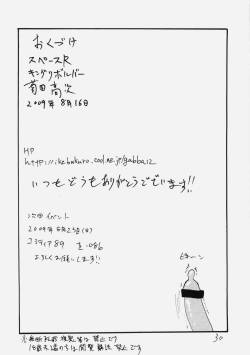 おくづけ
スペースR
キングリボルバー
菊田高次
2009年 8月16日
HP
http://ikebukuro.cool.ne.jp/gabba12
いつもどうもありがとうございます!!
次回イベント
2009年 8月23日(日)
コミティア89 を-08b
よろしくお願いします!!
ピキーン
※無断転載 複製等は禁止です
18歳未満の方は閲覧 購読 禁止です
30